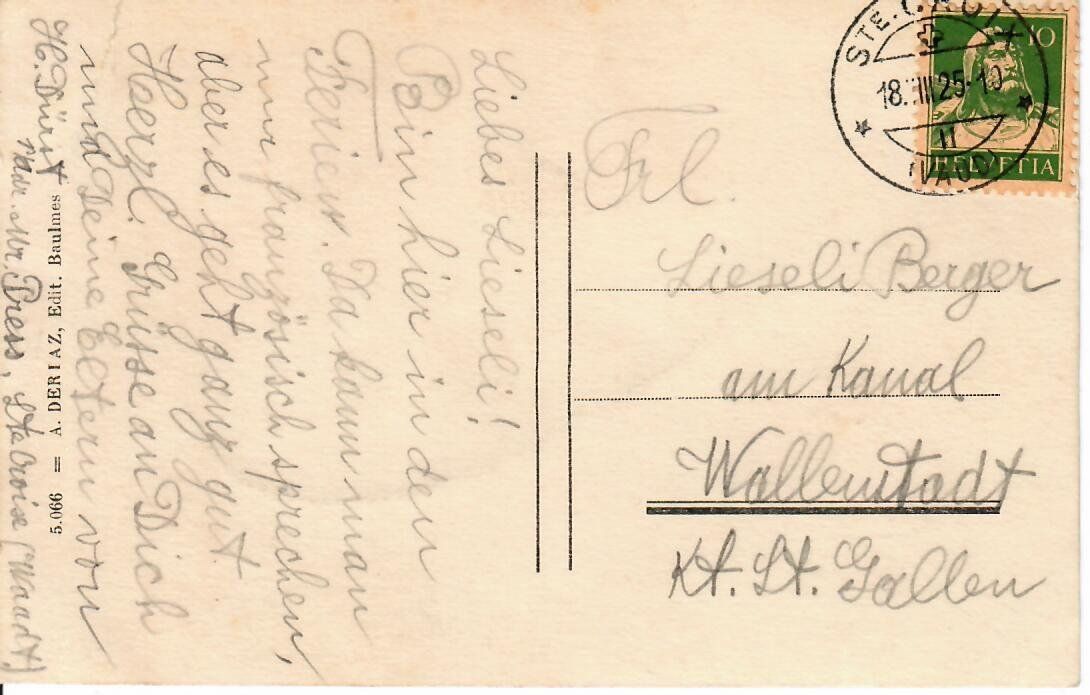 Liebes Lieseli!
Bin hier in den
Ferien. Da kann man
nur französisch sprechen,
aber es geht ganz gut.
Herzl. Grüsse an Dich
und Deine Eltern von
H. Dürst
Adr. Mr. Press, Ste Croix (Waadt)
5.066 = A. DERIAZ, Edit. Baulmes
STE. CROIX
18.VIII 25-10
II
(VAUD)
10
HELVETIA
Frl.
Lieseli Berger
am Kanal
Wallenstadt
Kt. St. Gallen